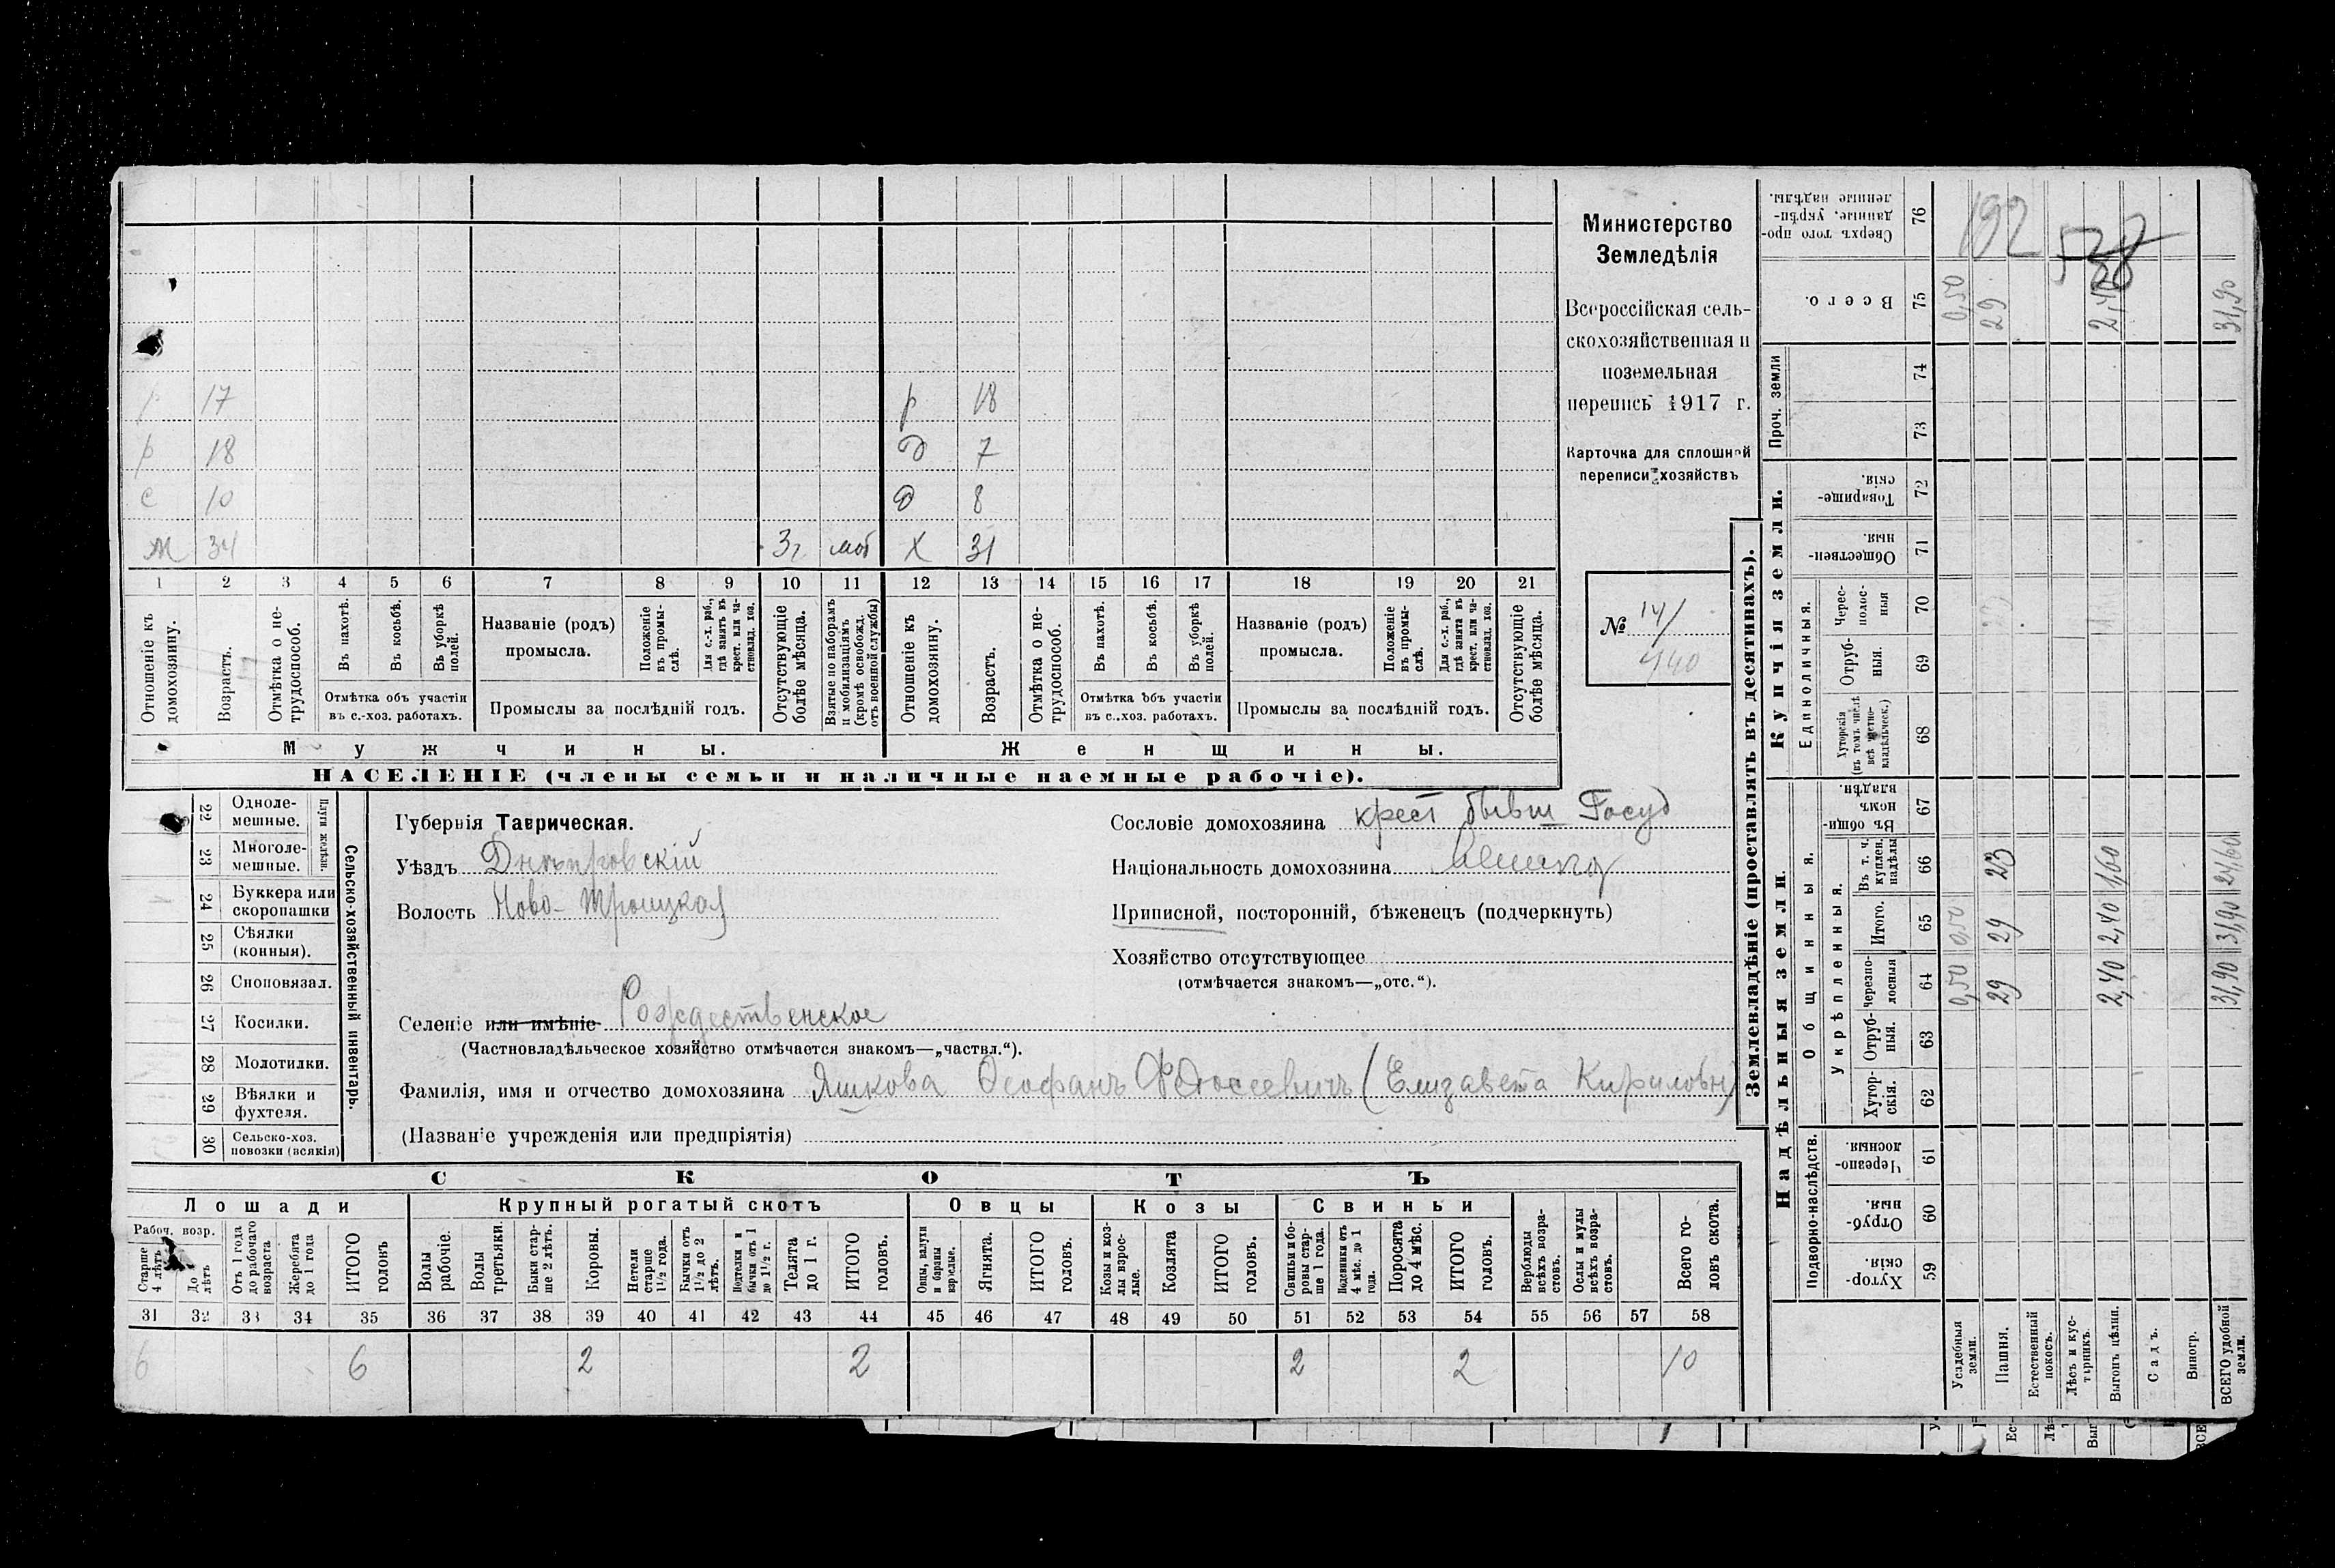 Министерство
Земледѣлія
Всероссійская сель-
скохозяйственная и
поземельная
перепись 1917 г.
Карточка для сплошной
переписи хозяйствъ
№ 141
440
р 17 р 18
р 18 д 7
с 10 д 8
м 34 3 г моб х 31
1 2 3 4 5 6 7 8 9 10 11 12 13 14 15 16 17 18 19 20 21
Отношеніе къ домохозяину.
Возрастъ.
Отмѣтка о не-трудоспособ.
Въ пахотѣ.
Въ косьбѣ.
Въ уборкѣ полей.
Отмѣтка объ участіи
въ с.-хоз. работахъ.
Названіе (родъ)
промысла.
Положеніе въ промы-слѣ.
Для с.-х. раб., гдѣ занятъ въ крест. или ча-стновлад. хоз.
Промыслы за послѣдній годъ.
Отсутствующіе болѣе мѣсяца.
Взятые по наборамъ и мобилизаціямъ (кромѣ освобожд. отъ военной службы)
Отношеніе къ домохозяину.
Возрастъ.
Отмѣтка о не-трудоспособ.
Въ пахотѣ.
Въ косьбѣ.
Въ уборкѣ полей.
Отмѣтка объ участіи
въ с.-хоз. работахъ.
Названіе (родъ)
промысла.
Положеніе въ промы-слѣ.
Для с.-х. раб., гдѣ занята въ крест. или ча-стновлад. хоз.
Промыслы за послѣдній годъ.
Отсутствующіе болѣе мѣсяца.
Мужчины. Женщины.
НАСЕЛЕНІЕ (члены семьи и наличные наемные рабочіе).
Сельско-хозяйственный инвентарь.
Плуги желѣзн.
22 Одноле-мешные.
23 Многоле-мешные.
24 Буккера или скоропашки
25 Сѣялки (конныя).
26 Сноповязал.
27 Косилки.
28 Молотилки.
29 Вѣялки и фухтеля.
30 Сельско-хоз. повозки (всякія)
Губернія Таврическая.
Уѣздъ Днѣпровскій
Волость Ново-Троицкая
Селеніе или имѣніе Рождественское
(Частновладѣльческое хозяйство отмѣчается знакомъ—„частвл.“).
Фамилія, имя и отчество домохозяина Яшкова Феофанъ (Елизавета Кириловн)
(Названіе учрежденія или предпріятія)
Сословіе домохозяина крест бывш Госуд
Національность домохозяина
Приписной, посторонній, бѣженецъ (подчеркнуть)
Хозяйство отсутствующее
(отмѣчается знакомъ—„отс.“).
СКОТЪ
Лошади Крупный рогатый скотъ Овцы Козы Свиньи
Рабоч. возр.
Старше 4 лѣтъ
До лѣтъ
Отъ 1 года до рабочаго возраста
Жеребята до 1 года
ИТОГО головъ
Волы рабочіе.
Волы третьяки.
Быки стар-ше 2 лѣтъ.
Коровы.
Нетели старше 1½ года.
Бычки отъ 1½ до 2 лѣтъ.
Подтелки и бычки отъ 1 до 1½ г.
Телята до 1 г.
ИТОГО головъ.
Овцы, валухи и бараны взрослые.
Ягнята.
ИТОГО головъ.
Козы и коз-лы взрос-лые.
Козлята
ИТОГО головъ.
Свиньи и бо-ровы стар-ше 1 года.
Подсвинки отъ 4 мѣс. до 1 года.
Поросята до 4 мѣс.
ИТОГО головъ.
Верблюды всѣхъ возра-стовъ.
Ослы и мулы всѣхъ возра-стовъ.
Всего го-ловъ скота.
31 32 33 34 35 36 37 38 39 40 41 42 43 44 45 46 47 48 49 50 51 52 53 54 55 56 57 58
6 6 2 2 2 2 10
Землевладѣніе (проставлять въ десятинахъ).
Надѣльныя земли. Купчія земли. Проч. земли
Подворно-наслѣдств. Общинныя. Укрѣпленныя. Единоличныя.
Хутор-скія. 59
Отруб-ныя. 60
Черезпо-лосныя. 61
Хутор-скія. 62
Отруб-ныя. 63
Черезпо-лосныя 64
Итого. 65
Въ т. ч. куплен. надѣлы 66
Въ общин-номъ владѣн. 67
Хуторскія (въ томъ числѣ всѣ частно-владѣльческ.) 68
Отруб-ныя. 69
Черес-полос-ныя 70
Обществен-ныя. 71
Товарище-скія. 72
73 74
Всего. 75
Сверхъ того про-данные, укрѣп-ленные надѣлы. 76
192
538
Усадебныя земли. 0,50 0,50 0,50
Пашня. 29 29 23 29
Естественный покосъ.
Лѣсъ и кус-тарникъ.
Выгонъ цѣлин. 2,40 2,40 1,60 2,40
Садъ.
Виногр.
ВСЕГО удобной земли. 31,90 31,90 24,60 31,90